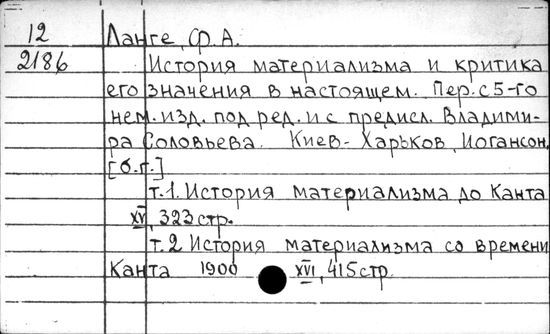 12 Ланге, Ф. А.
2186 История материализма и критика
его значения в настоящем. Пер. с 5-го
нем. изд. под ред. и с предисл. Владими-
ра Соловьева. Киев-Харьков, Иогансон,
[б.г.]
т.1. История материализма до Канта
XV, 323 стр.
т.2 История материализма со времени
Канта 1900 XVI, 415 стр.